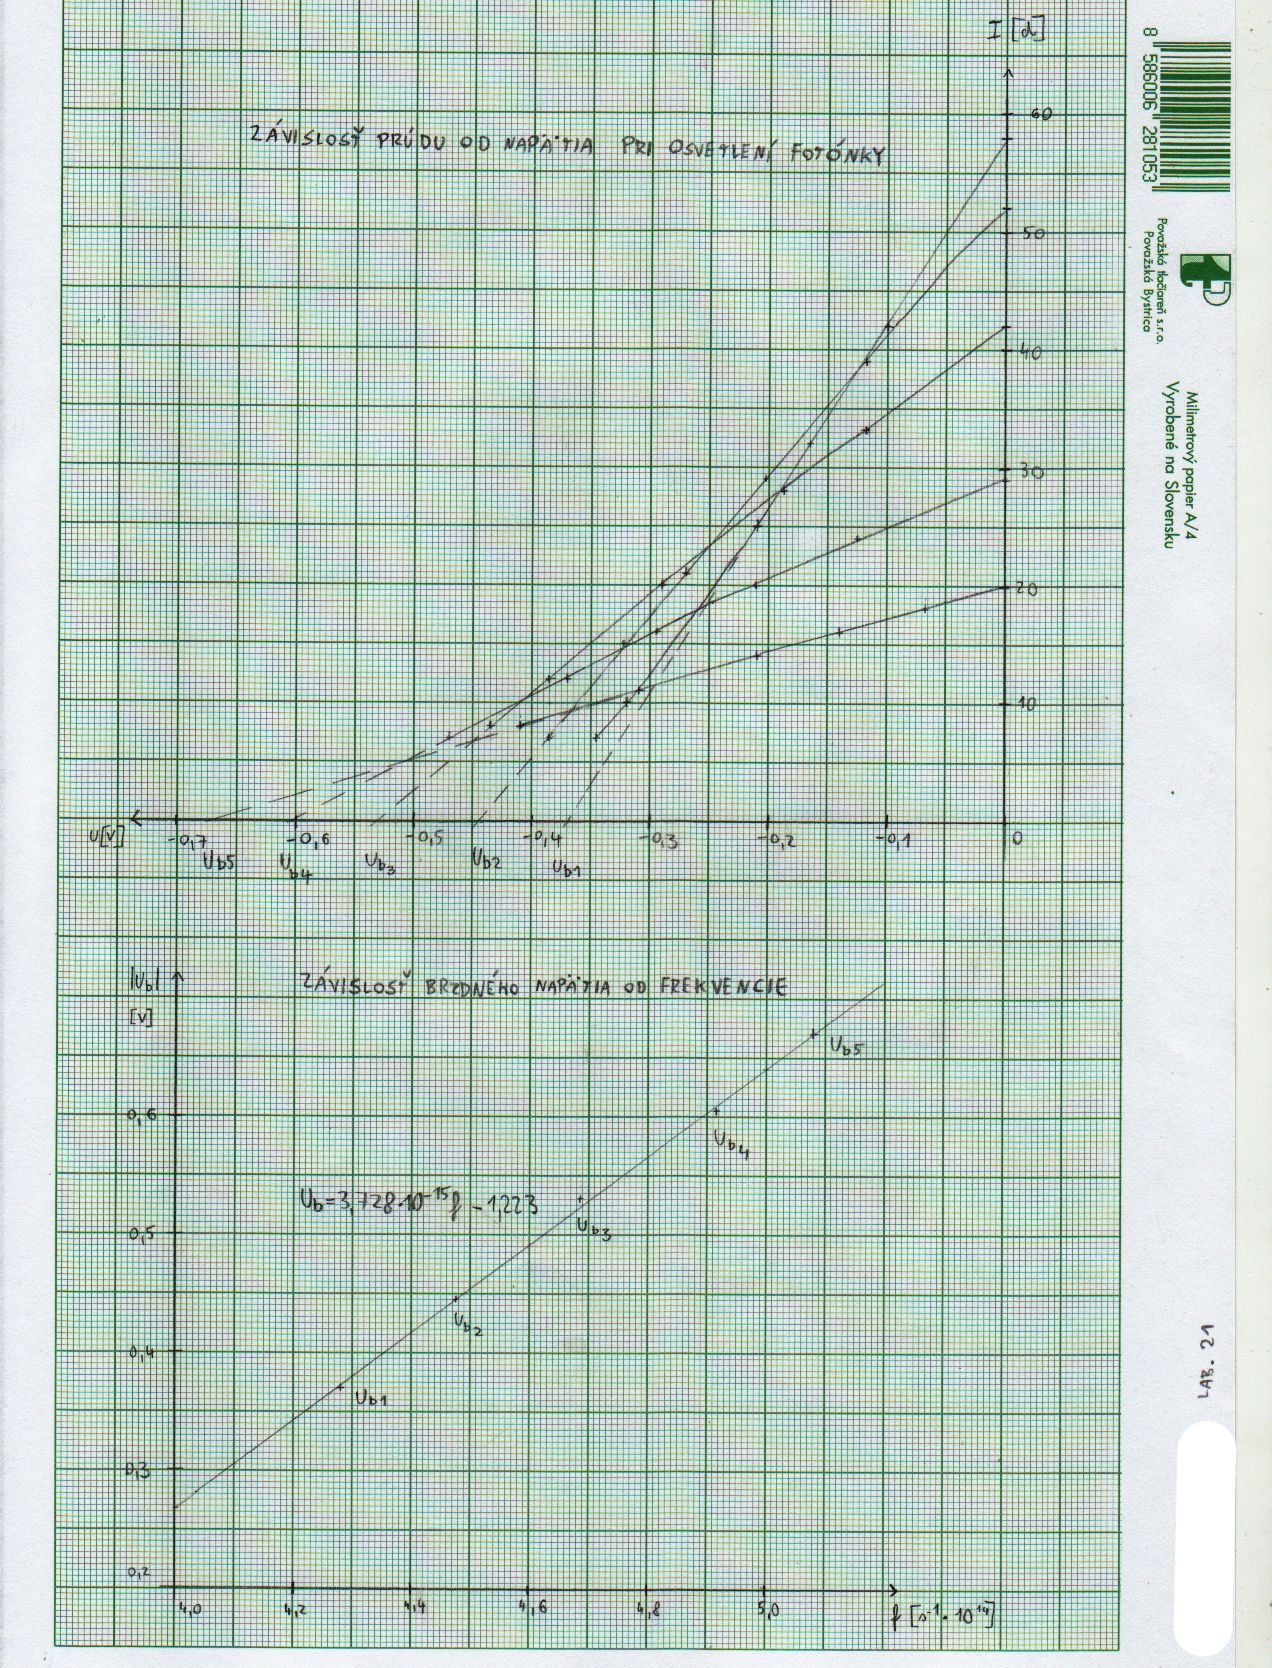 I [d]
60
ZÁVISLOSŤ PRÚDU OD NAPÄTIA PRI OSVETLENÍ FOTÓNKY
50
40
30
20
10
U[V] -0,7 -0,6 -0,5 -0,4 -0,3 -0,2 -0,1 0
Ub5 Ub4 Ub3 Ub2 Ub1
|Ub|
[V]
ZÁVISLOSŤ BRZDNÉHO NAPÄTIA OD FREKVENCIE
Ub5
0,6
Ub4
Ub=3,728·10⁻¹⁵f - 1,223
0,5
Ub3
Ub2
0,4
Ub1
0,3
0,2
4,0 4,2 4,4 4,6 4,8 5,0 f [s⁻¹·10¹⁴]
8 586006 281053
Považská tlačiareň s.r.o.
Považská Bystrica
Milimetrový papier A/4
Vyrobené na Slovensku
LAB. 21